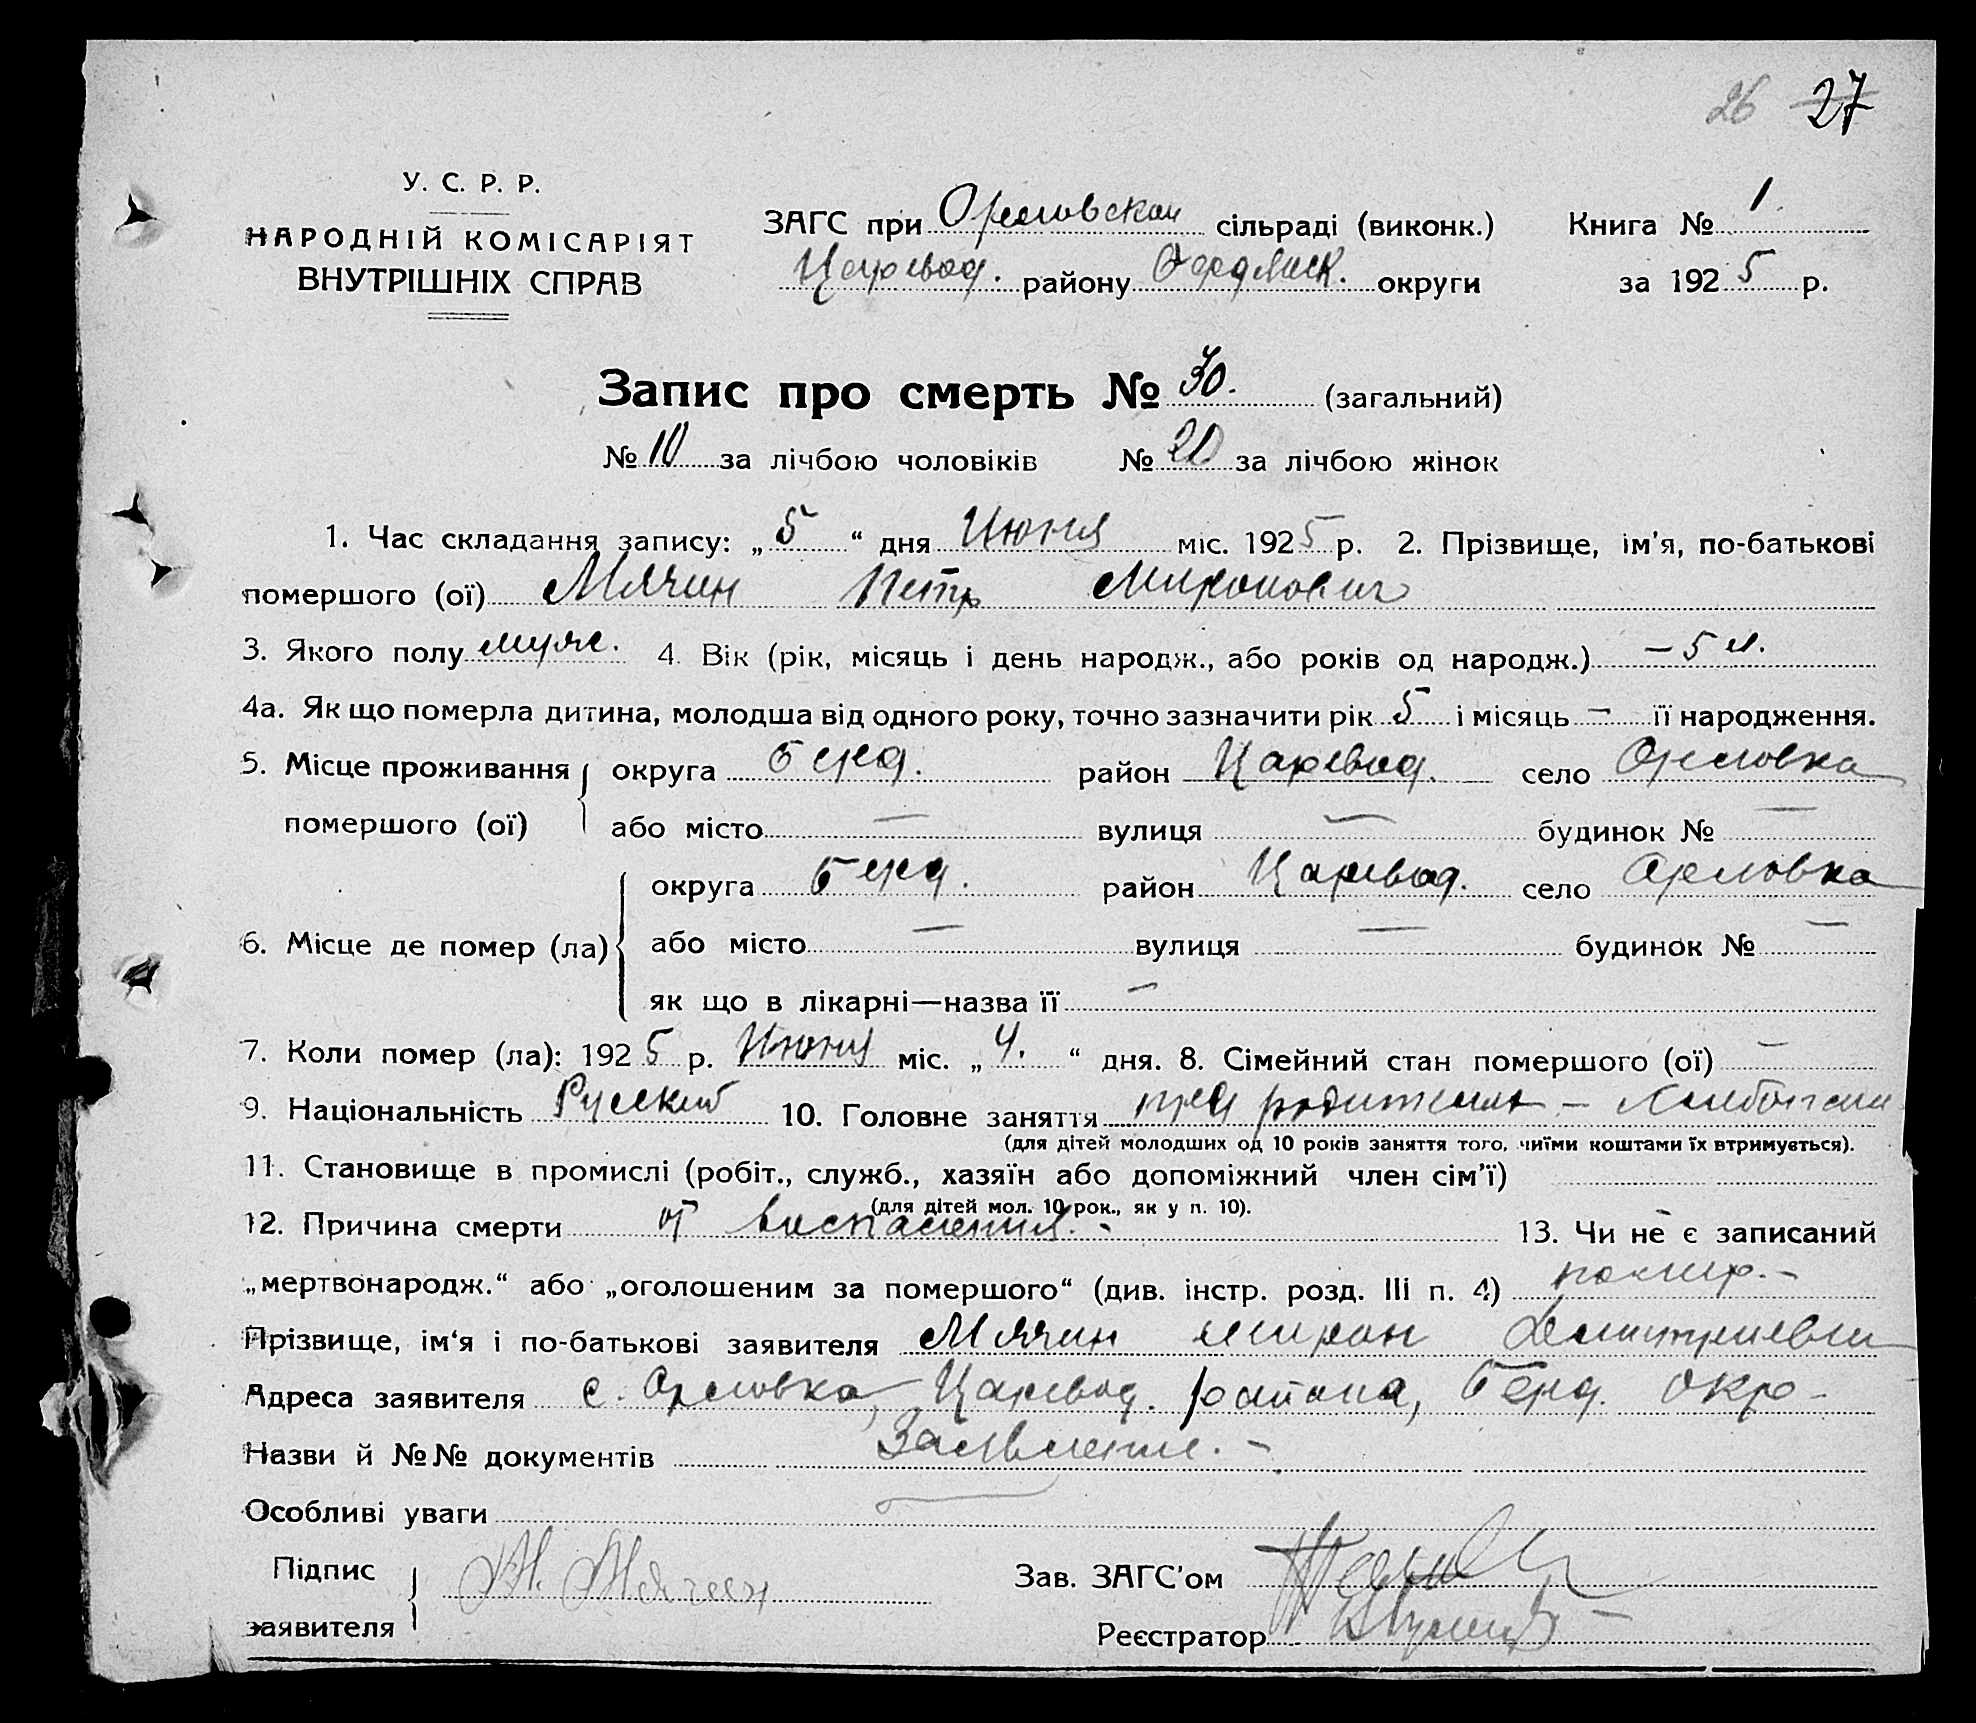 26 27
У. С. Р. Р.
НАРОДНІЙ КОМІСАРІЯТ
ВНУТРІШНІХ СПРАВ
ЗАГС при Орловской сільраді (виконк.) Книга № 1.
Царевод. району Бердянск. округи за 1925 р.
Запис про смерть № 30. (загальний)
№ 10 за лічбою чоловіків № 20 за лічбою жінок
1. Час складання запису: „5“ дня Июня міс. 1925 р. 2. Прізвище, ім'я, по-батькові
помершого (ої) Мячин Петр Миронович
3. Якого полу муж. 4. Вік (рік, місяць і день народж., або років од народж.) – 5 л.
4а. Як що померла дитина, молодша від одного року, точно зазначити рік 5 і місяць – її народження.
5. Місце проживання помершого (ої) округа Берд. район Царевод. село Орловка
або місто — вулиця — будинок № —
6. Місце де помер (ла) округа Берд. район Царевод. село Орловка
або місто — вулиця — будинок № —
як що в лікарні—назва її —
7. Коли помер (ла): 1925 р. Июня міс. „4.“ дня. 8. Сімейний стан помершого (ої) —
9. Національність Русский 10. Головне заняття при родителях –
(для дітей молодших од 10 років заняття того, чиїми коштами їх втримується).
11. Становище в промислі (робіт., служб., хазяїн або допоміжний член сім'ї)
(для дітей мол. 10 рок., як у п. 10).
12. Причина смерти от воспаления. - 13. Чи не є записаний
„мертвонародж.“ або „оголошеним за помершого“ (див. інстр. розд. III п. 4)
Прізвище, ім'я і по-батькові заявителя Мячин Мирон Дмитриевич
Адреса заявителя с. Орловка, Царевод. района, Берд. окр-
Назви й №№ документів Заявление. –
Особливі уваги
Підпис заявителя М. Мячин
Зав. ЗАГС'ом
Реєстратор